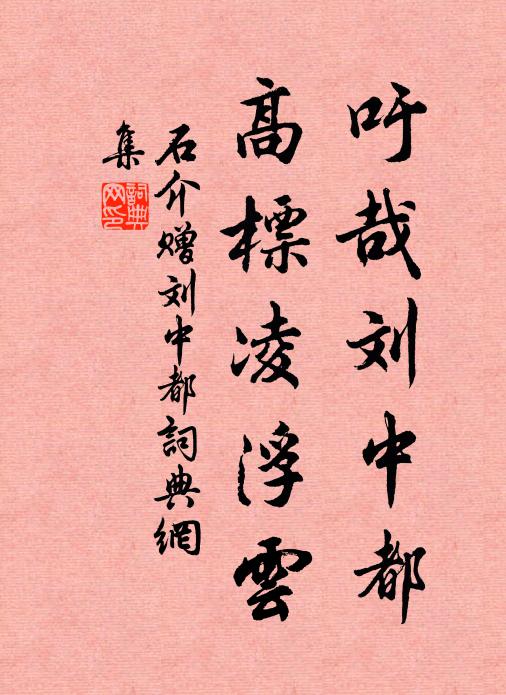 吁哉刘中都
高標凌浮雲
石介赠刘中都詞典網
集
詞典
网印